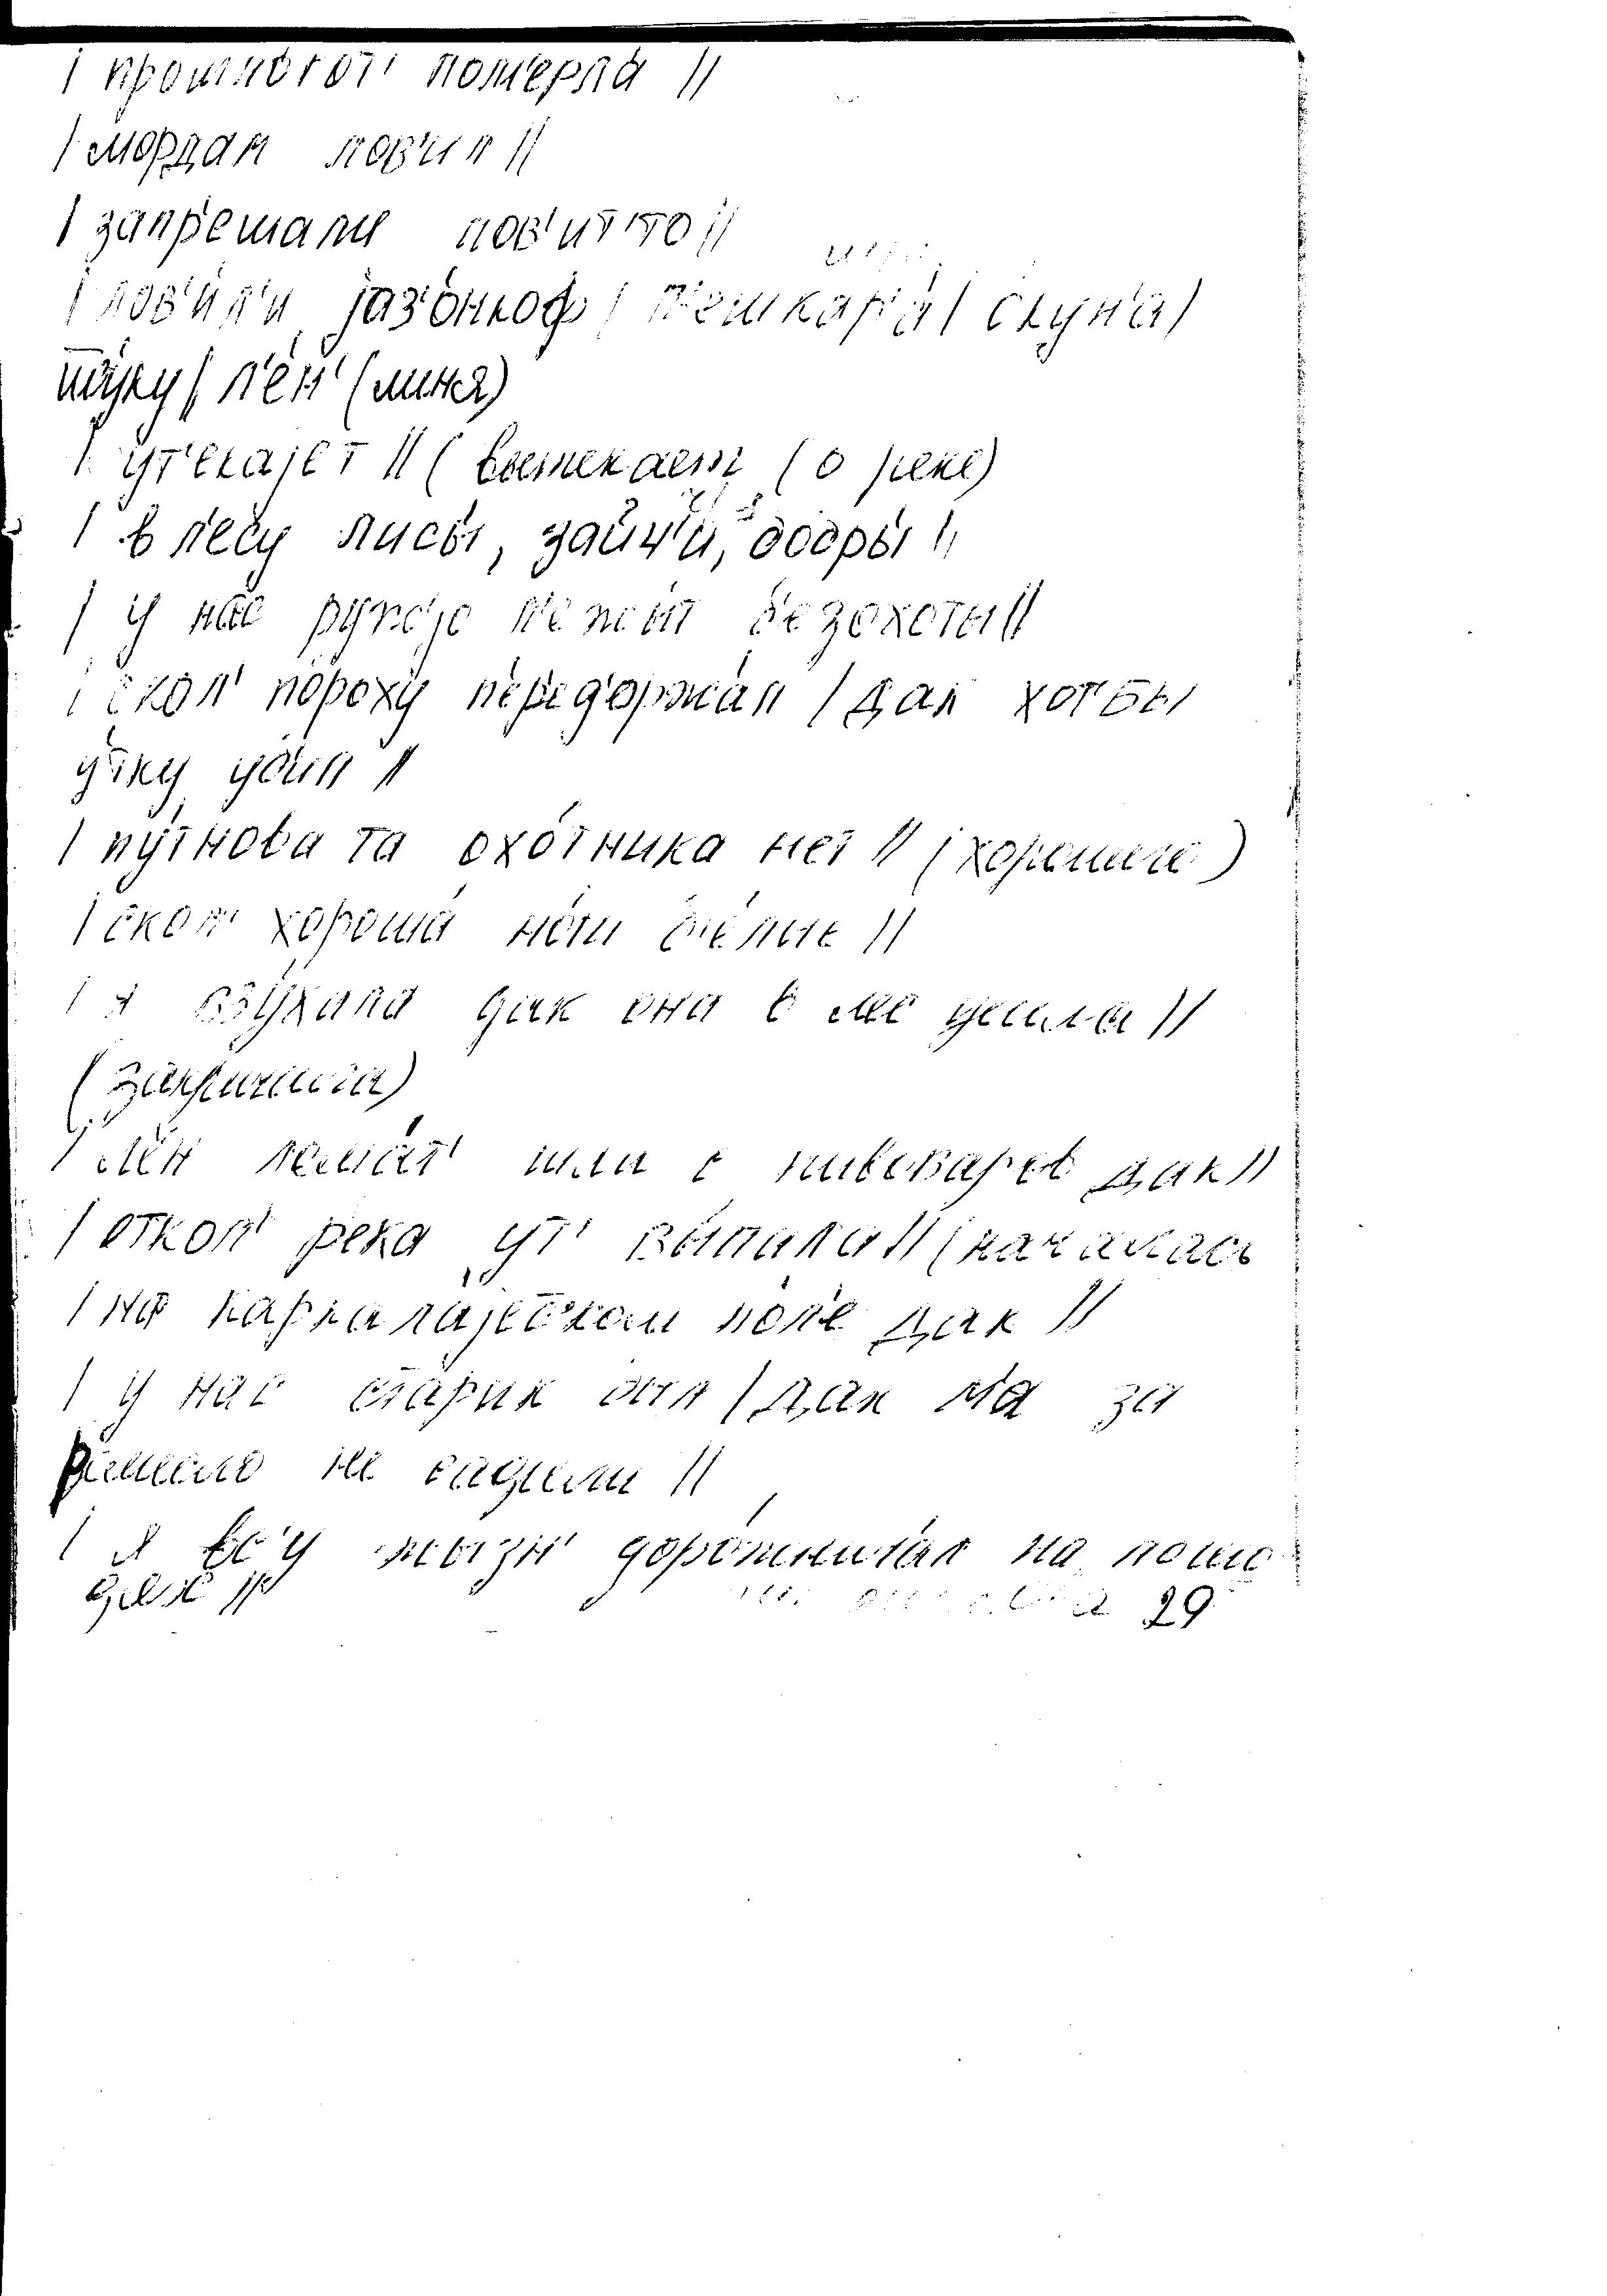 | прошлогот' померла ||
| мордам ловил ||
| запрешали лов'ит'то ||
| лов'ил'и jаз'онкоф | п'ешкар'а | окун'а |
шуку || л'ен' (линя)
| ут'екаjет || (вытекает (о реке)
| в лесу лисы, зайчи, бобры ||
| у нас ружjо л'ежыт без охоты ||
| скол' пороху п'ер'ед'ержал | дак хот бы
утку убил ||
| путнова та охотника нет || (хорошего)
| скол' хороша ноги белые ||
| я взухала дак она в лес ушла ||
(закричала)
| лен шли с дак ||
| откол' река ут' выпала || (началась
| на поле дак ||
| у нас старик был | дак м'а за
не садили ||
| я вс'у жызн' на лоша
дях || 29